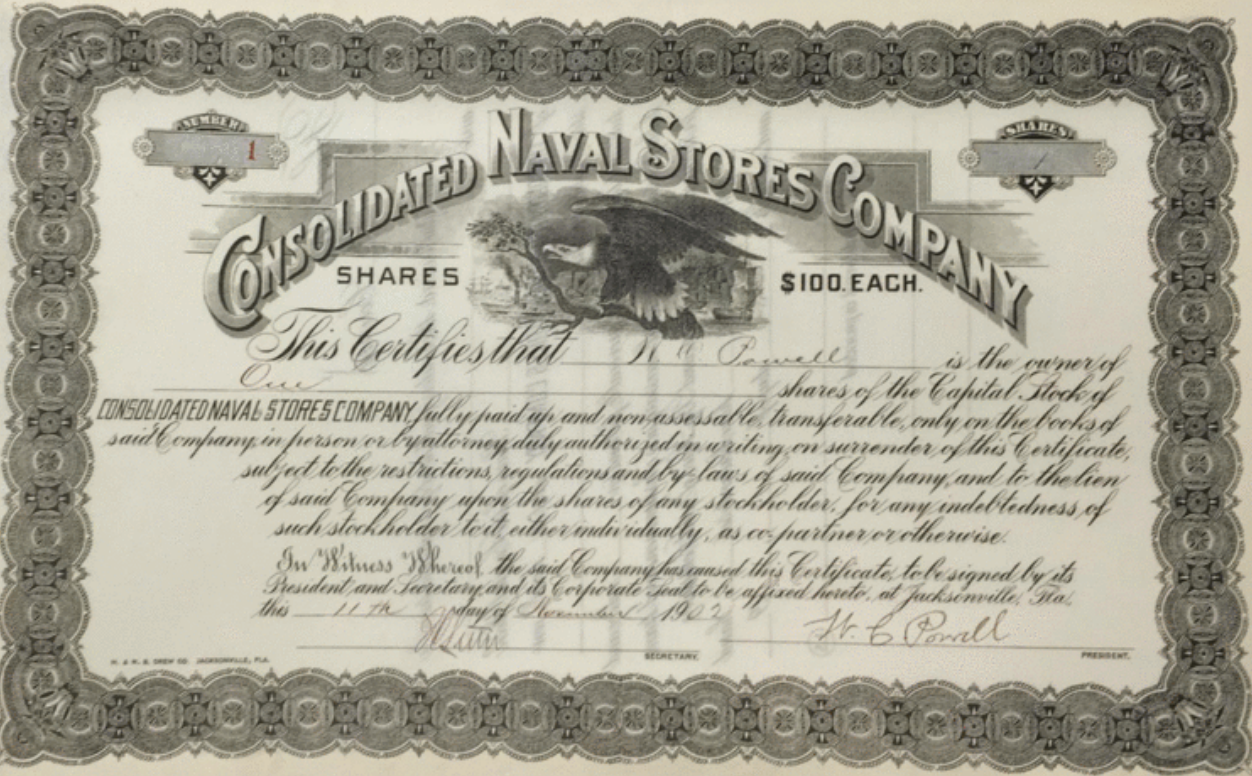 NUMBER
1
SHARES
1
CONSOLIDATED NAVAL STORES COMPANY
SHARES $100. EACH.
This Certifies that W. C. Powell is the owner of
One shares of the Capital Stock of
CONSOLIDATED NAVAL STORES COMPANY, fully paid up and non-assessable, transferable, only on the books of
said Company, in person or by attorney duly authorized in writing, on surrender of this Certificate,
subject to the restrictions, regulations and by-laws of said Company, and to the lien
of said Company upon the shares of any stockholder, for any indebtedness of
such stockholder to it, either individually, as co-partner or otherwise.
In Witness Whereof, the said Company has caused this Certificate, to be signed by its
President and Secretary, and its Corporate Seal to be affixed hereto, at Jacksonville, Fla,
this 11th day of November 1902
W. C. Powell
H. & W. B. DREW CO. JACKSONVILLE, FLA.
SECRETARY.
PRESIDENT.